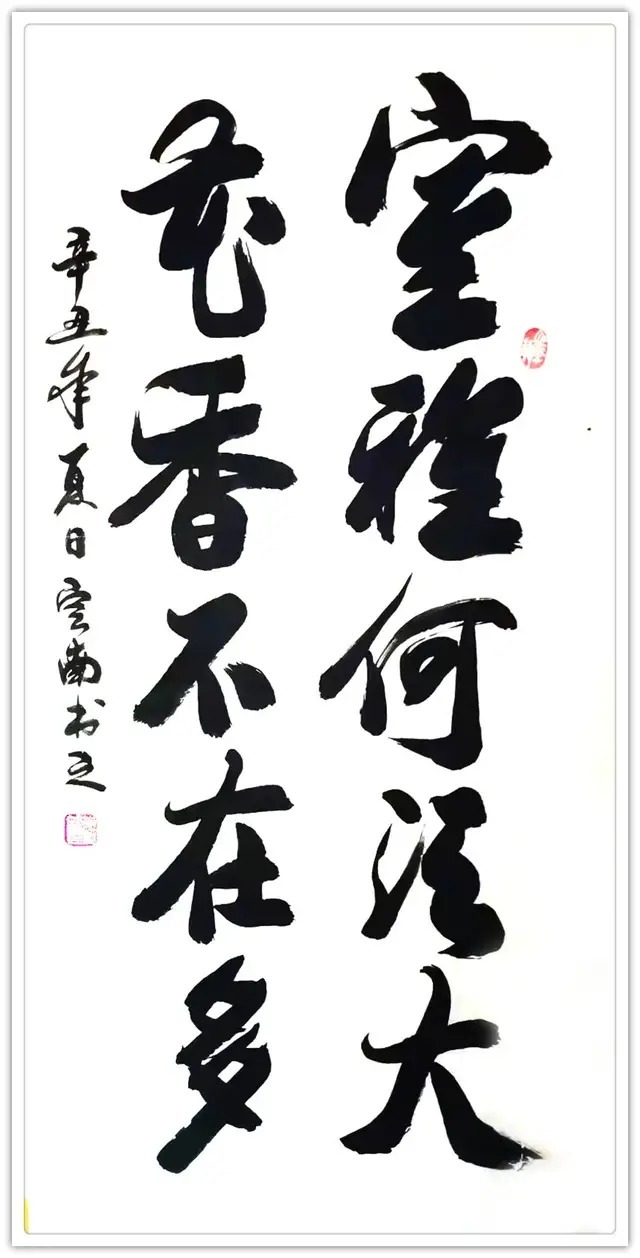 室雅何须大
花香不在多
辛丑年夏日云南书之